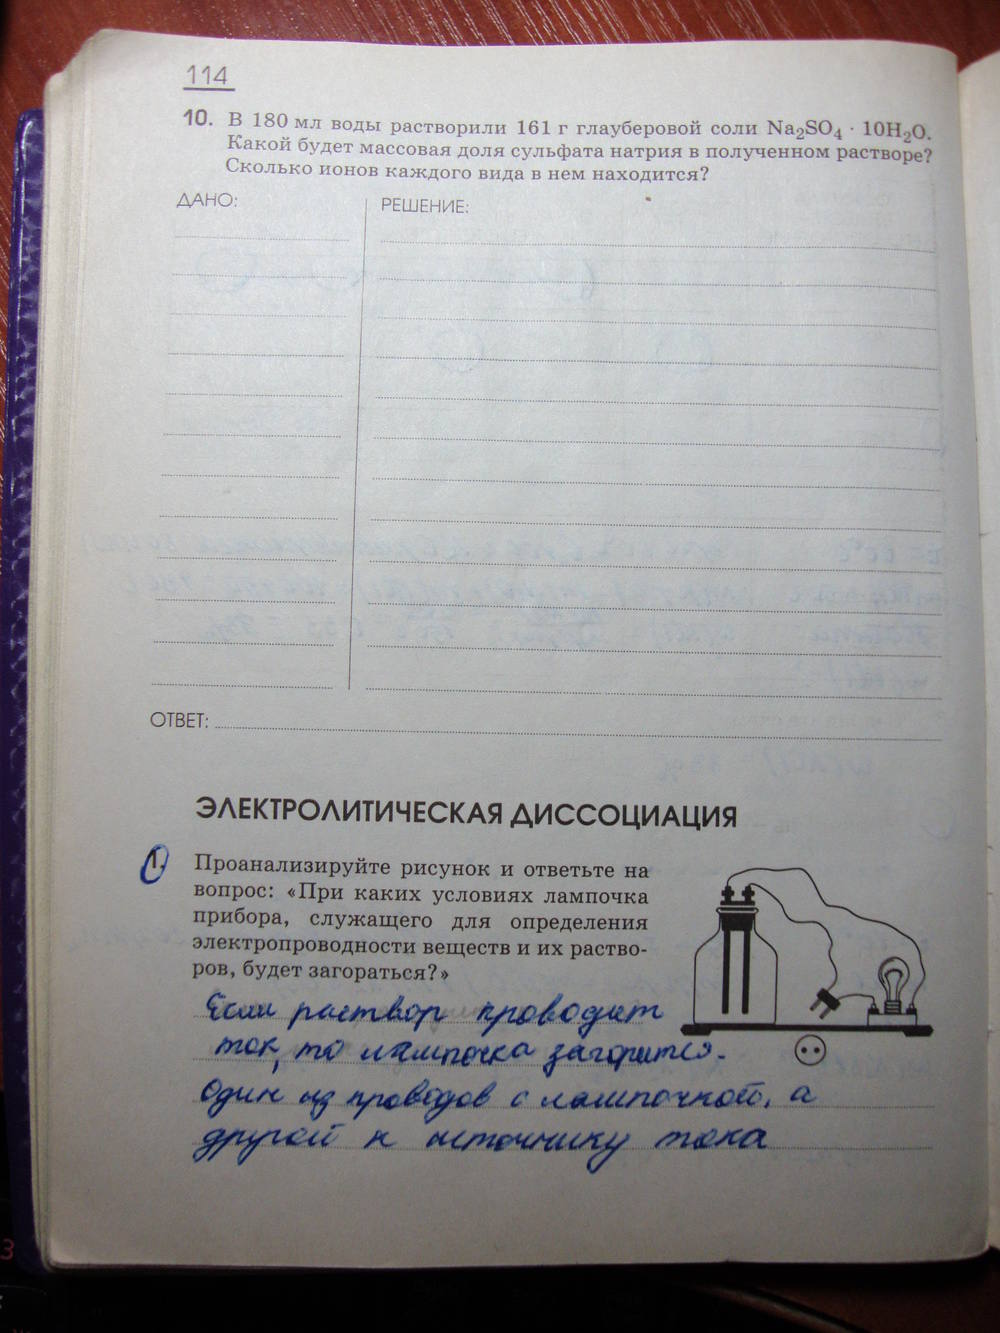 114
10. В 180 мл воды растворили 161 г глауберовой соли Na₂SO₄ · 10H₂O.
Какой будет массовая доля сульфата натрия в полученном растворе?
Сколько ионов каждого вида в нем находится?
ДАНО:
РЕШЕНИЕ:
ОТВЕТ:
ЭЛЕКТРОЛИТИЧЕСКАЯ ДИССОЦИАЦИЯ
1. Проанализируйте рисунок и ответьте на
вопрос: «При каких условиях лампочка
прибора, служащего для определения
электропроводности веществ и их раство-
ров, будет загораться?»
Если раствор проводит
ток, то лампочка загорится.
Один из проводов с лампочкой, а
другой к источнику тока